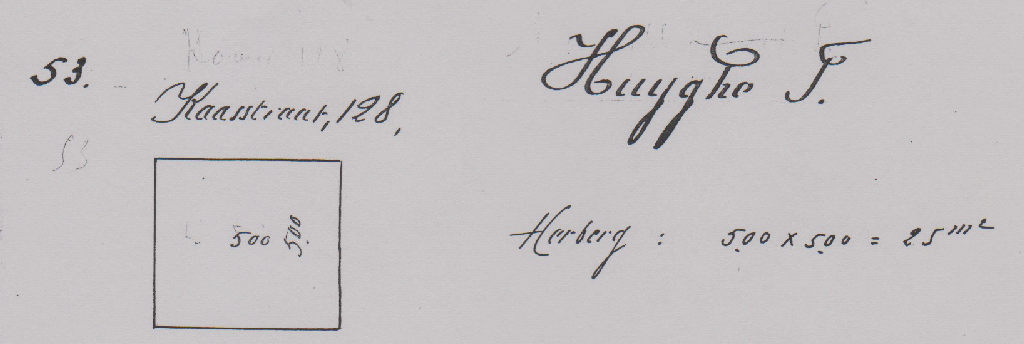 53.
Kaasstraat, 128.
Huyghe T.
53
500 500
Herberg : 5.00 x 5.00 = 25 m²